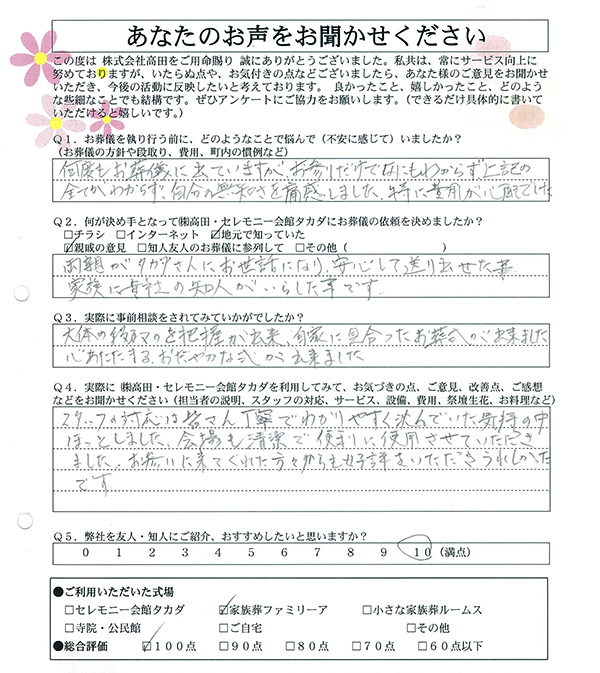 あなたのお声をお聞かせください
この度は 株式会社高田をご用命賜り 誠にありがとうございました。私共は、常にサービス向上に
努めておりますが、いたらぬ点や、お気付きの点などございましたら、あなた様のご意見をお聞かせ
いただき、今後の活動に反映したいと考えております。 良かったこと、嬉しかったこと、どのよう
な些細なことでも結構です。ぜひアンケートにご協力をお願いします。（できるだけ具体的に書いて
いただけると嬉しいです。）
Ｑ１．お葬儀を執り行う前に、どのようなことで悩んで（不安に感じて）いましたか？
（お葬儀の方針や段取り、費用、町内の慣例など）
何度もお葬儀に出ていますが、お参りだけでなにもわからず上記の
全てがわからず、自分の無知さを痛感しました、特に費用が心配でした
Ｑ２．何が決め手となって㈱高田・セレモニー会館タカダにお葬儀の依頼を決めましたか？
□チラシ □インターネット ☑地元で知っていた
☑親戚の意見 □知人友人のお葬儀に参列して □その他（ ）
両親がタカダさんにお世話になり、安心して送り出せた事
家族に貴社の知人がいらした事です。
Ｑ３．実際に事前相談をされてみていかがでしたか？
大体の を把握が出来、自家に見合ったお葬式が出来ました
心あたたまる、おだやかな式が出来ました
Ｑ４．実際に ㈱高田・セレモニー会館タカダを利用してみて、お気づきの点、ご意見、改善点、ご感想
などをお聞かせください（担当者の説明、スタッフの対応、サービス、設備、費用、祭壇生花、お料理など）
スタッフの対応は皆さん丁寧でわかりやすく沈んでいた気持の中
ほっとしました、会場も清潔で便利に使用させていただき
ました。お参りに来てくれた方々からも好評をいただきうれしかった
です
Ｑ５．弊社を友人・知人にご紹介、おすすめしたいと思いますか？
０ １ ２ ３ ４ ５ ６ ７ ８ ９ １０（満点）
●ご利用いただいた式場
□セレモニー会館タカダ ☑家族葬ファミリーア □小さな家族葬ルームス
□寺院・公民館 □ご自宅 □その他
●総合評価 ☑１００点 □９０点 □８０点 □７０点 □６０点以下